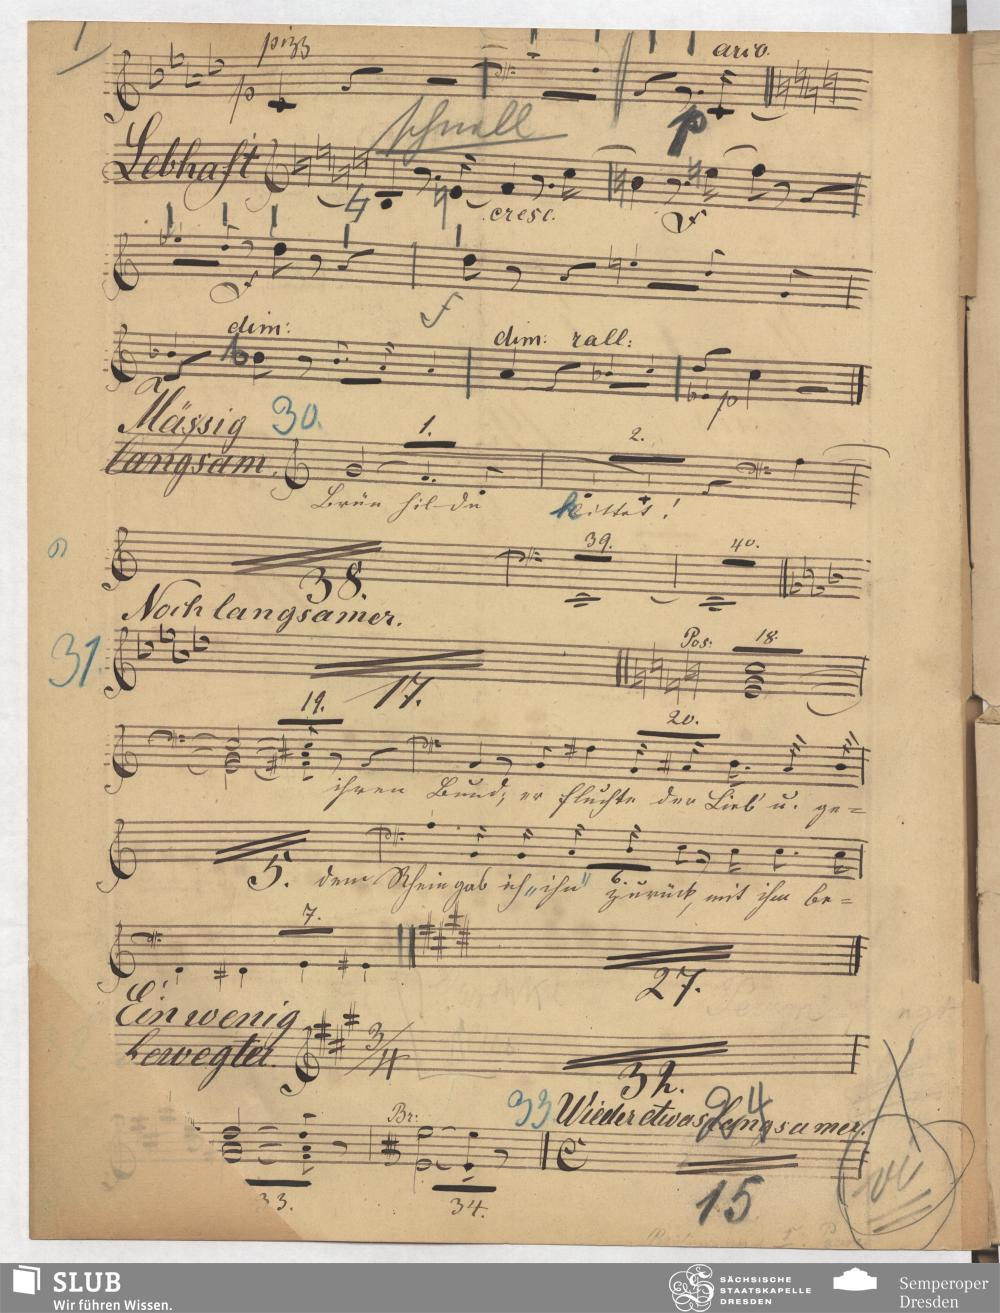 pizz
arco.
p
p
schnell
Lebhaft
cresc.
f
f
f
dim:
dim: rall:
p
Mässig
langsam.
30.
1.
2.
Brün hil-de bittet!
38.
39.
40.
Noch langsamer.
31.
17.
Pos:
18.
19.
20.
ihren Bund; er fluchte der Lieb' u. ge=
5.
6.
dem Rhein gab ich „ihn" zurück, mit ihm be=
7.
27.
Ein wenig
bewegter.
3/4
32.
33 Wieder etwas langsamer.
24
Br:
33.
34.
15
SLUB
Wir führen Wissen.
SÄCHSISCHE
STAATSKAPELLE
DRESDEN
Semperoper
Dresden